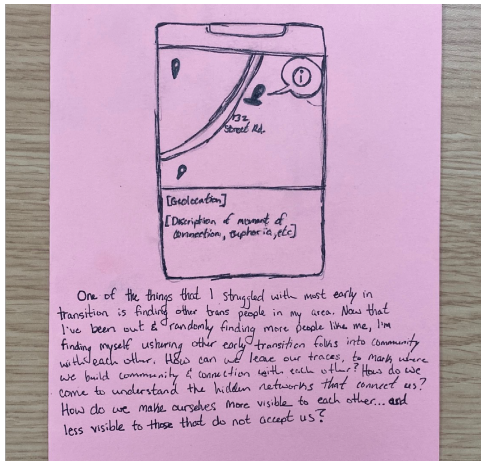 i
132
Street Rd.
[Geolocation]
[Description of moment of
connection, euphoria, etc]
One of the things that I struggled with most early in
transition is finding other trans people in my area. Now that
I've been out & randomly finding more people like me, I'm
finding myself ushering other early transition folks into community
with each other. How can we leave our traces, to mark where
we build community & connection with each other? How do we
come to understand the hidden networks that connect us?
How do we make ourselves more visible to each other... and
less visible to those that do not accept us?